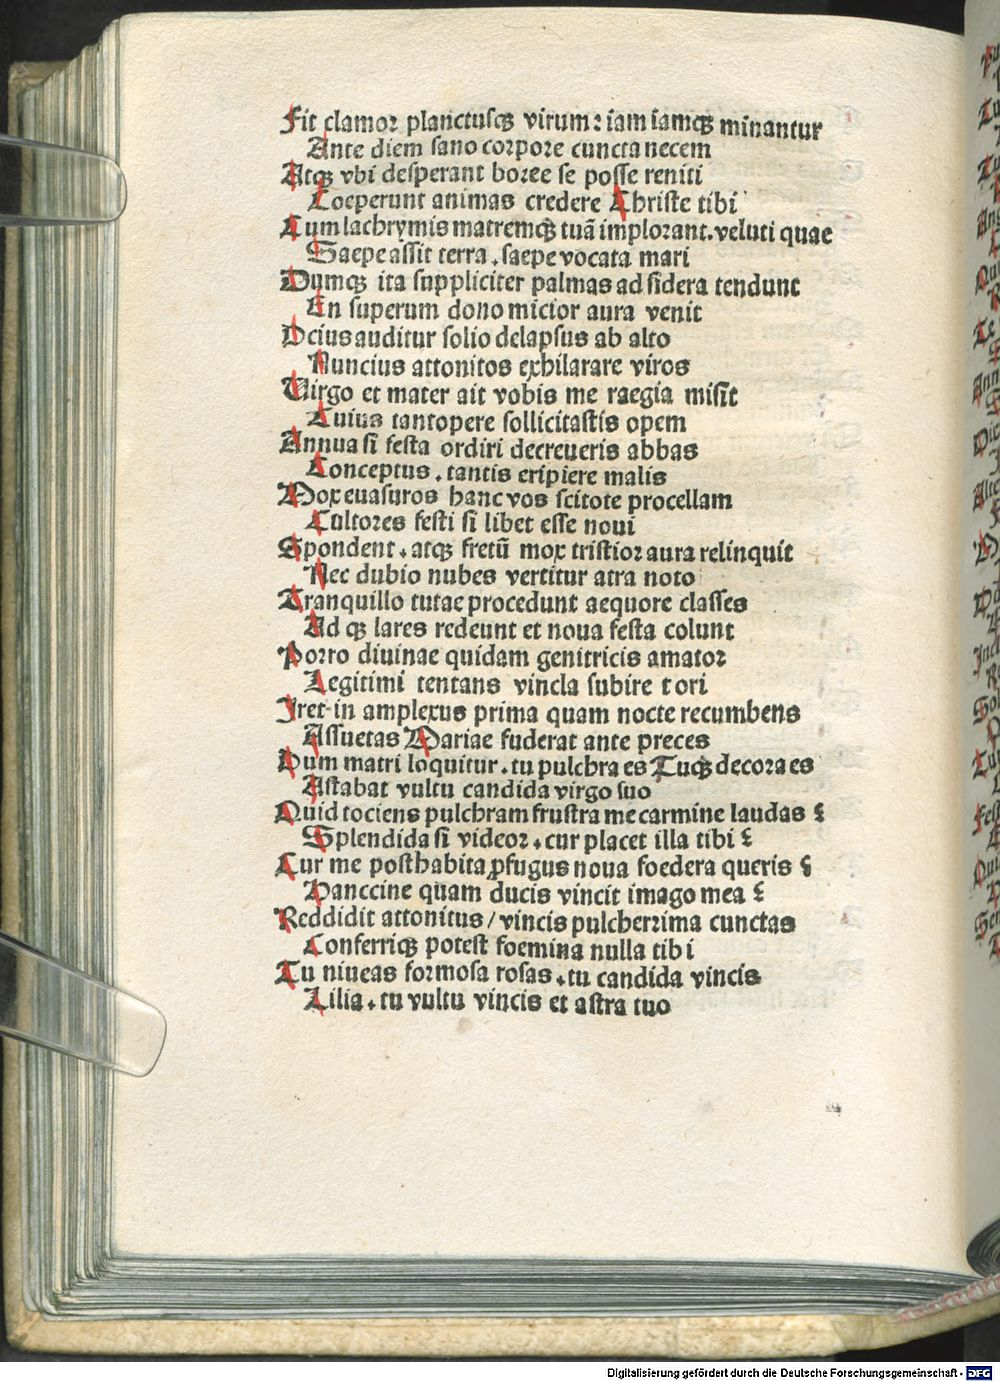 Fit clamor planctusqꝫ virum: iam iamqꝫ minantur
Ante diem sano corpore cuncta necem
Atqꝫ vbi desperant boree se posse reniti
Coeperunt animas credere Christe tibi
Cum lachrymis matremqꝫ tuā implorant. veluti quae
Saepe assit terra. saepe vocata mari
Dumqꝫ ita suppliciter palmas ad sidera tendunt
En superum dono micior aura venit
Ocius auditur solio delapsus ab alto
Nuncius attonitos exhilarare viros
Uirgo et mater ait vobis me raegia misit
Cuius tantopere sollicitastis opem
Annua si festa ordiri decreueris abbas
Conceptus. tantis eripiere malis
Mox euasuros hanc vos scitote procellam
Cultores festi si libet esse noui
Spondent. atqꝫ fretū mox tristior aura relinquit
Nec dubio nubes vertitur atra noto
Tranquillo tutae procedunt aequore classes
Ad qꝫ lares redeunt et noua festa colunt
Porro diuinae quidam genitricis amator
Legitimi tentans vincla subire tori
Iret in amplexus prima quam nocte recumbens
Assuetas Mariae fuderat ante preces
Dum matri loquitur. tu pulchra es Tuqꝫ decora es
Astabat vultu candida virgo suo
Quid tociens pulchram frustra me carmine laudas ?
Splendida si videor. cur placet illa tibi ?
Cur me posthabita ꝓfugus noua foedera queris ?
Hanccine quam ducis vincit imago mea ?
Reddidit attonitus / vincis pulcherrima cunctas
Conferriqꝫ potest foemina nulla tibi
Tu niueas formosa rosas. tu candida vincis
Lilia. tu vultu vincis et astra tuo
Digitalisierung gefördert durch die Deutsche Forschungsgemeinschaft - DFG